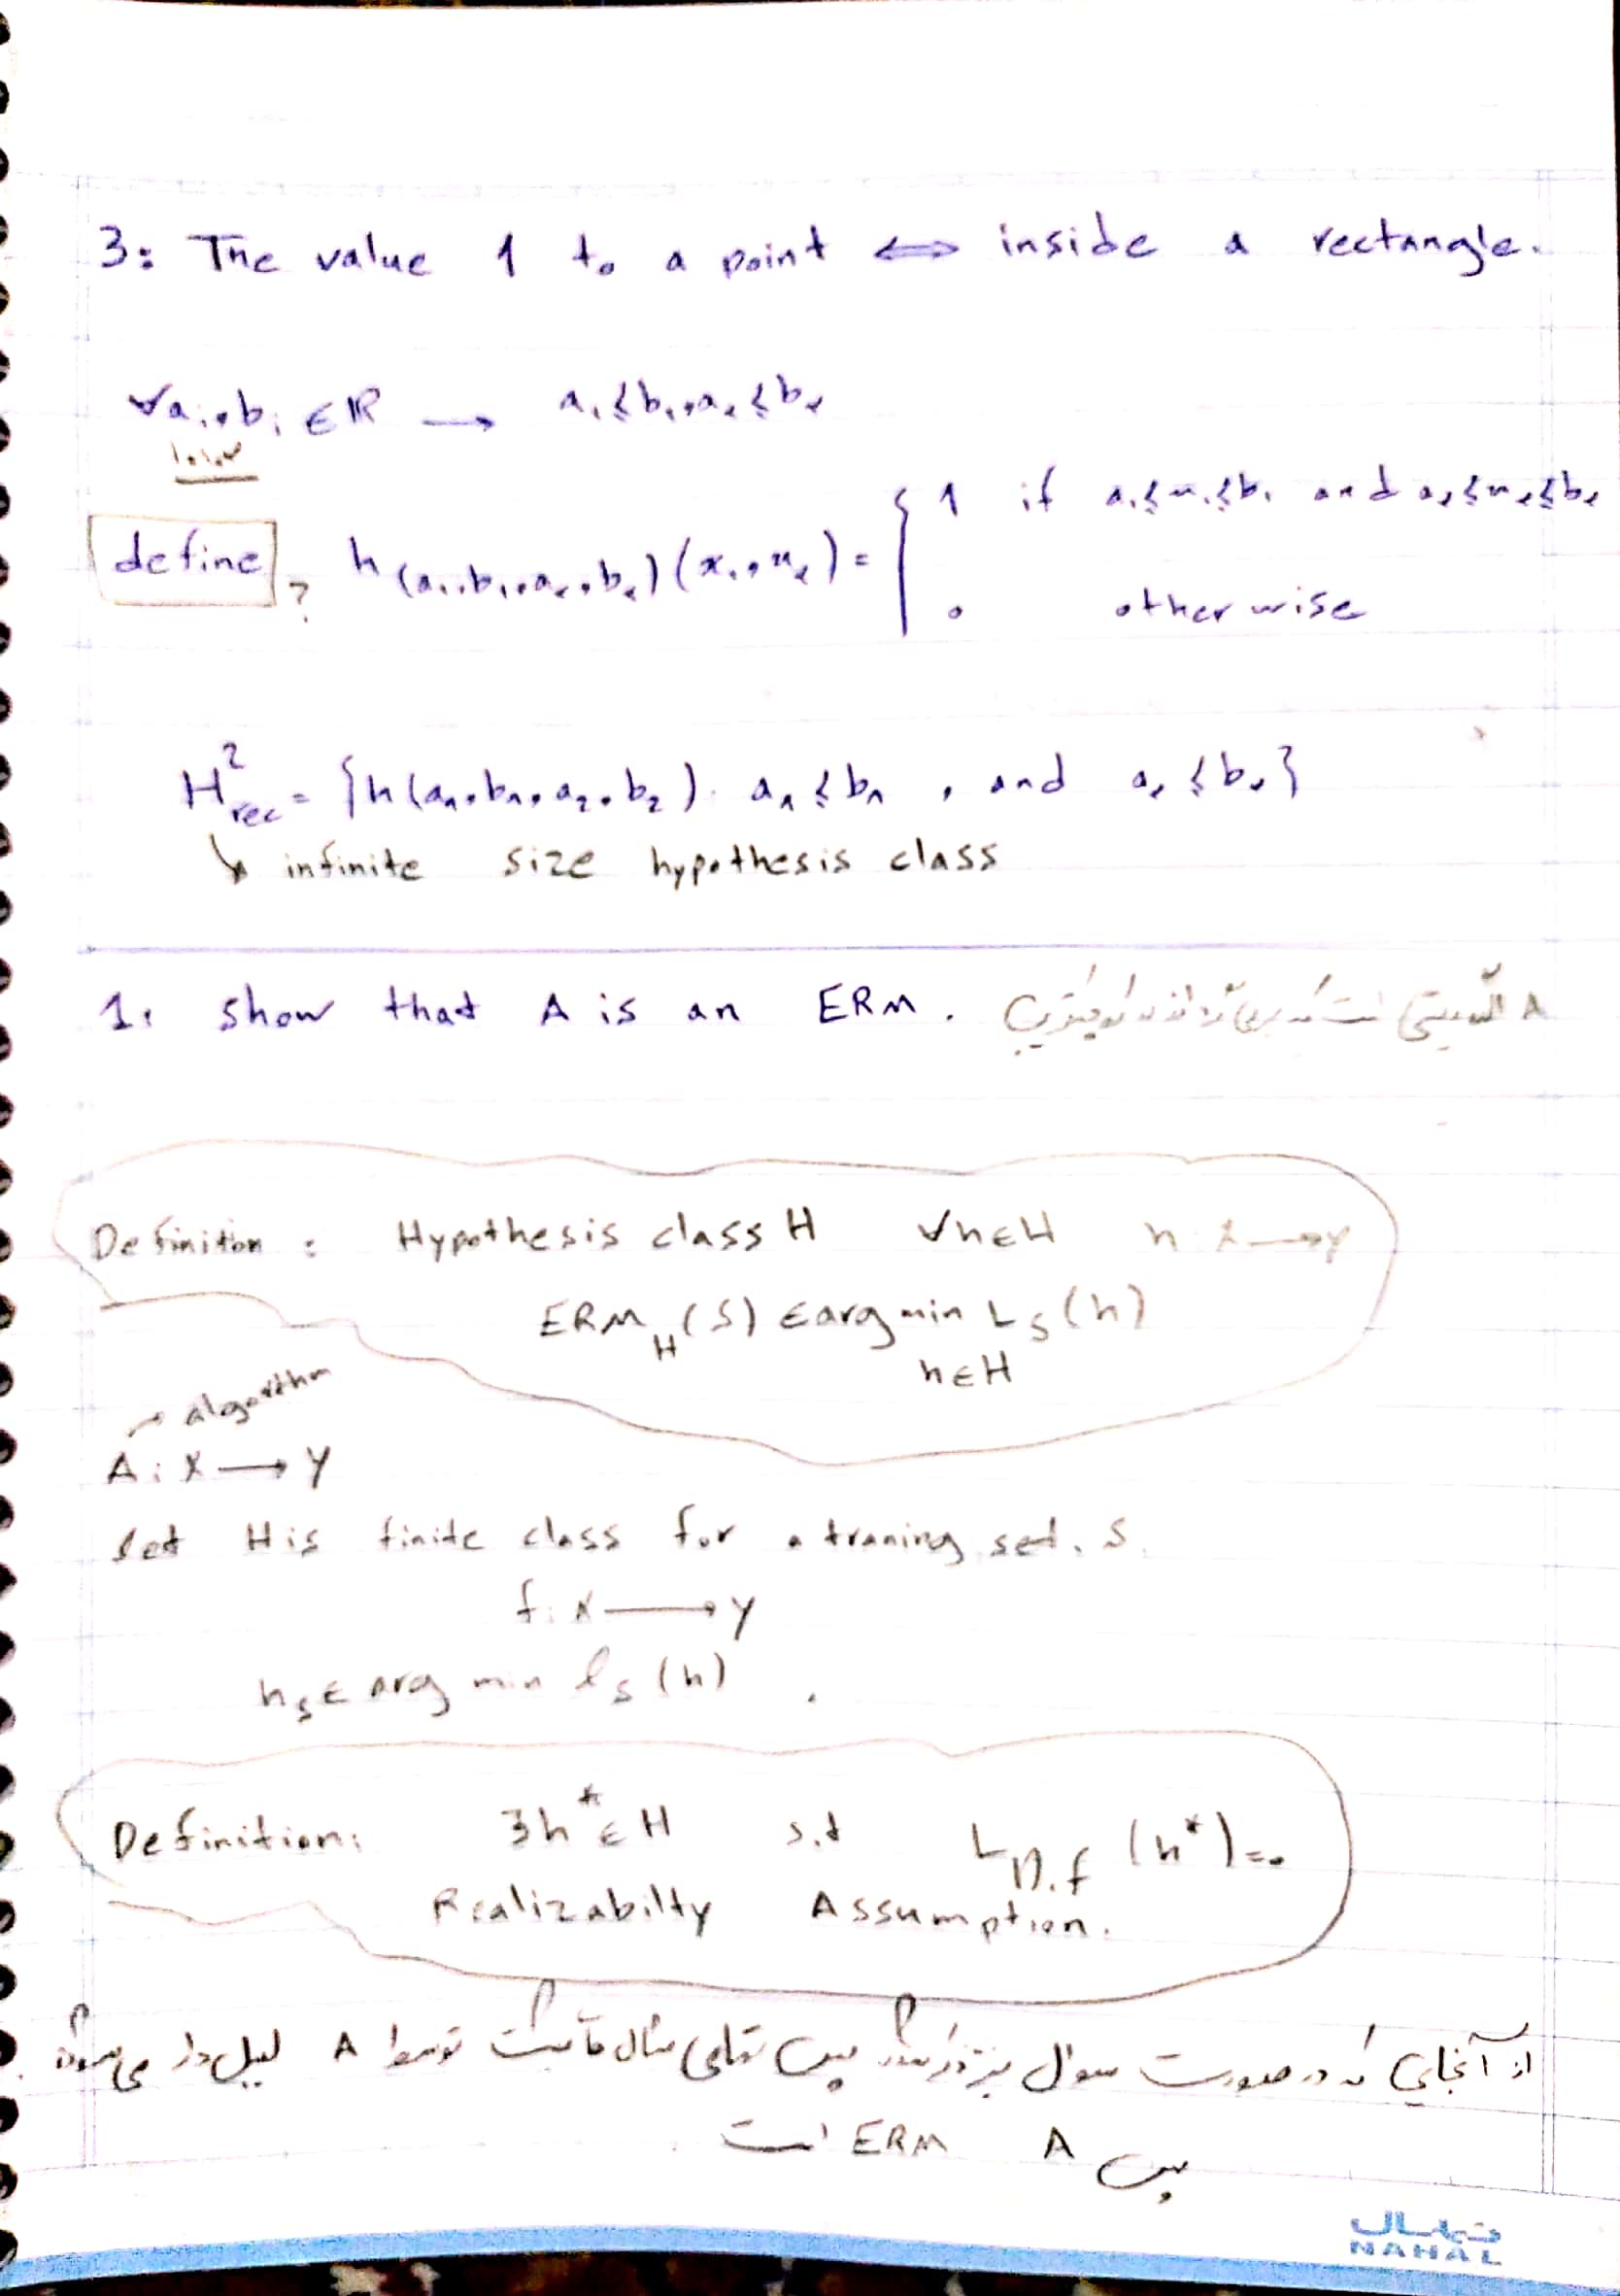 3: The value 1 to a point ⟺ inside a rectangle.
∀a₁,b₁ ∈ ℝ → a₁≤b₁, a₂≤b₂
define, h(a₁,b₁,a₂,b₂)(x₁,x₂) = { 1 if a₁≤x₁≤b₁ and a₂≤x₂≤b₂
? 0 otherwise
H²rec = {h(a₁,b₁,a₂,b₂). a₁≤b₁, and a₂≤b₂}
↘ infinite size hypothesis class
1: show that A is an ERM. A الگوریتمی است که
Definition: Hypothesis class H ∀h∈H h: X→Y
ERM_H(S) ∈ arg min L_S(h)
h∈H
→ algorithm
A: X → Y
let H is finite class for a traning set. S.
f: X → Y
h_S ∈ arg min l_S(h).
Definition: ∃h*∈H s.t L_D,f (h*)=0
Realizabilty Assumption.
از آنجایی که در صورت سوال نیز پس تمامی مثال مثبت توسط A لیبل دار می‌شوند.
پس A ERM است
نهال
NAHAL